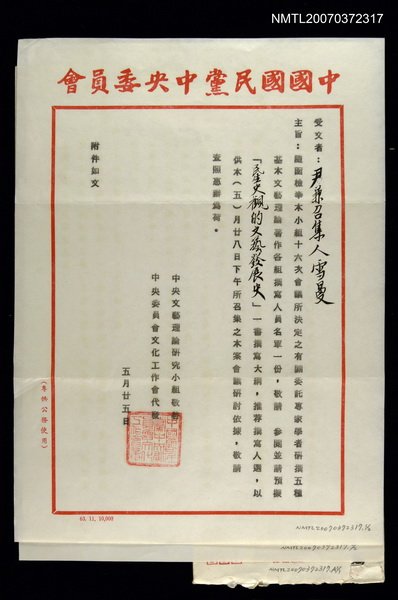 NMTL20070372317
中國國民黨中央委員會
受文者：尹兼召集人雪曼
主旨：隨函檢奉本小組十六次會議所決定之有關委託專家學者研撰五種
基本文藝理論著作各組撰寫人員名單一份，敬請　參閱並請預擬
「民生史觀的文藝發展史」一書撰寫大綱，推荐撰寫人選，以
供本（五）月廿八日下午所召集之本案會議研討依據，敬請
查照惠辦為荷。
附件如文
中央文藝理論研究小組敬啟
中央委員會文化工作會代發
五月廿五日
（專供公務使用）
63. 11. 10,000
NMTL20070372317.1/2
NMTL20070372317.2/2
NMTL20070372317.A1/1